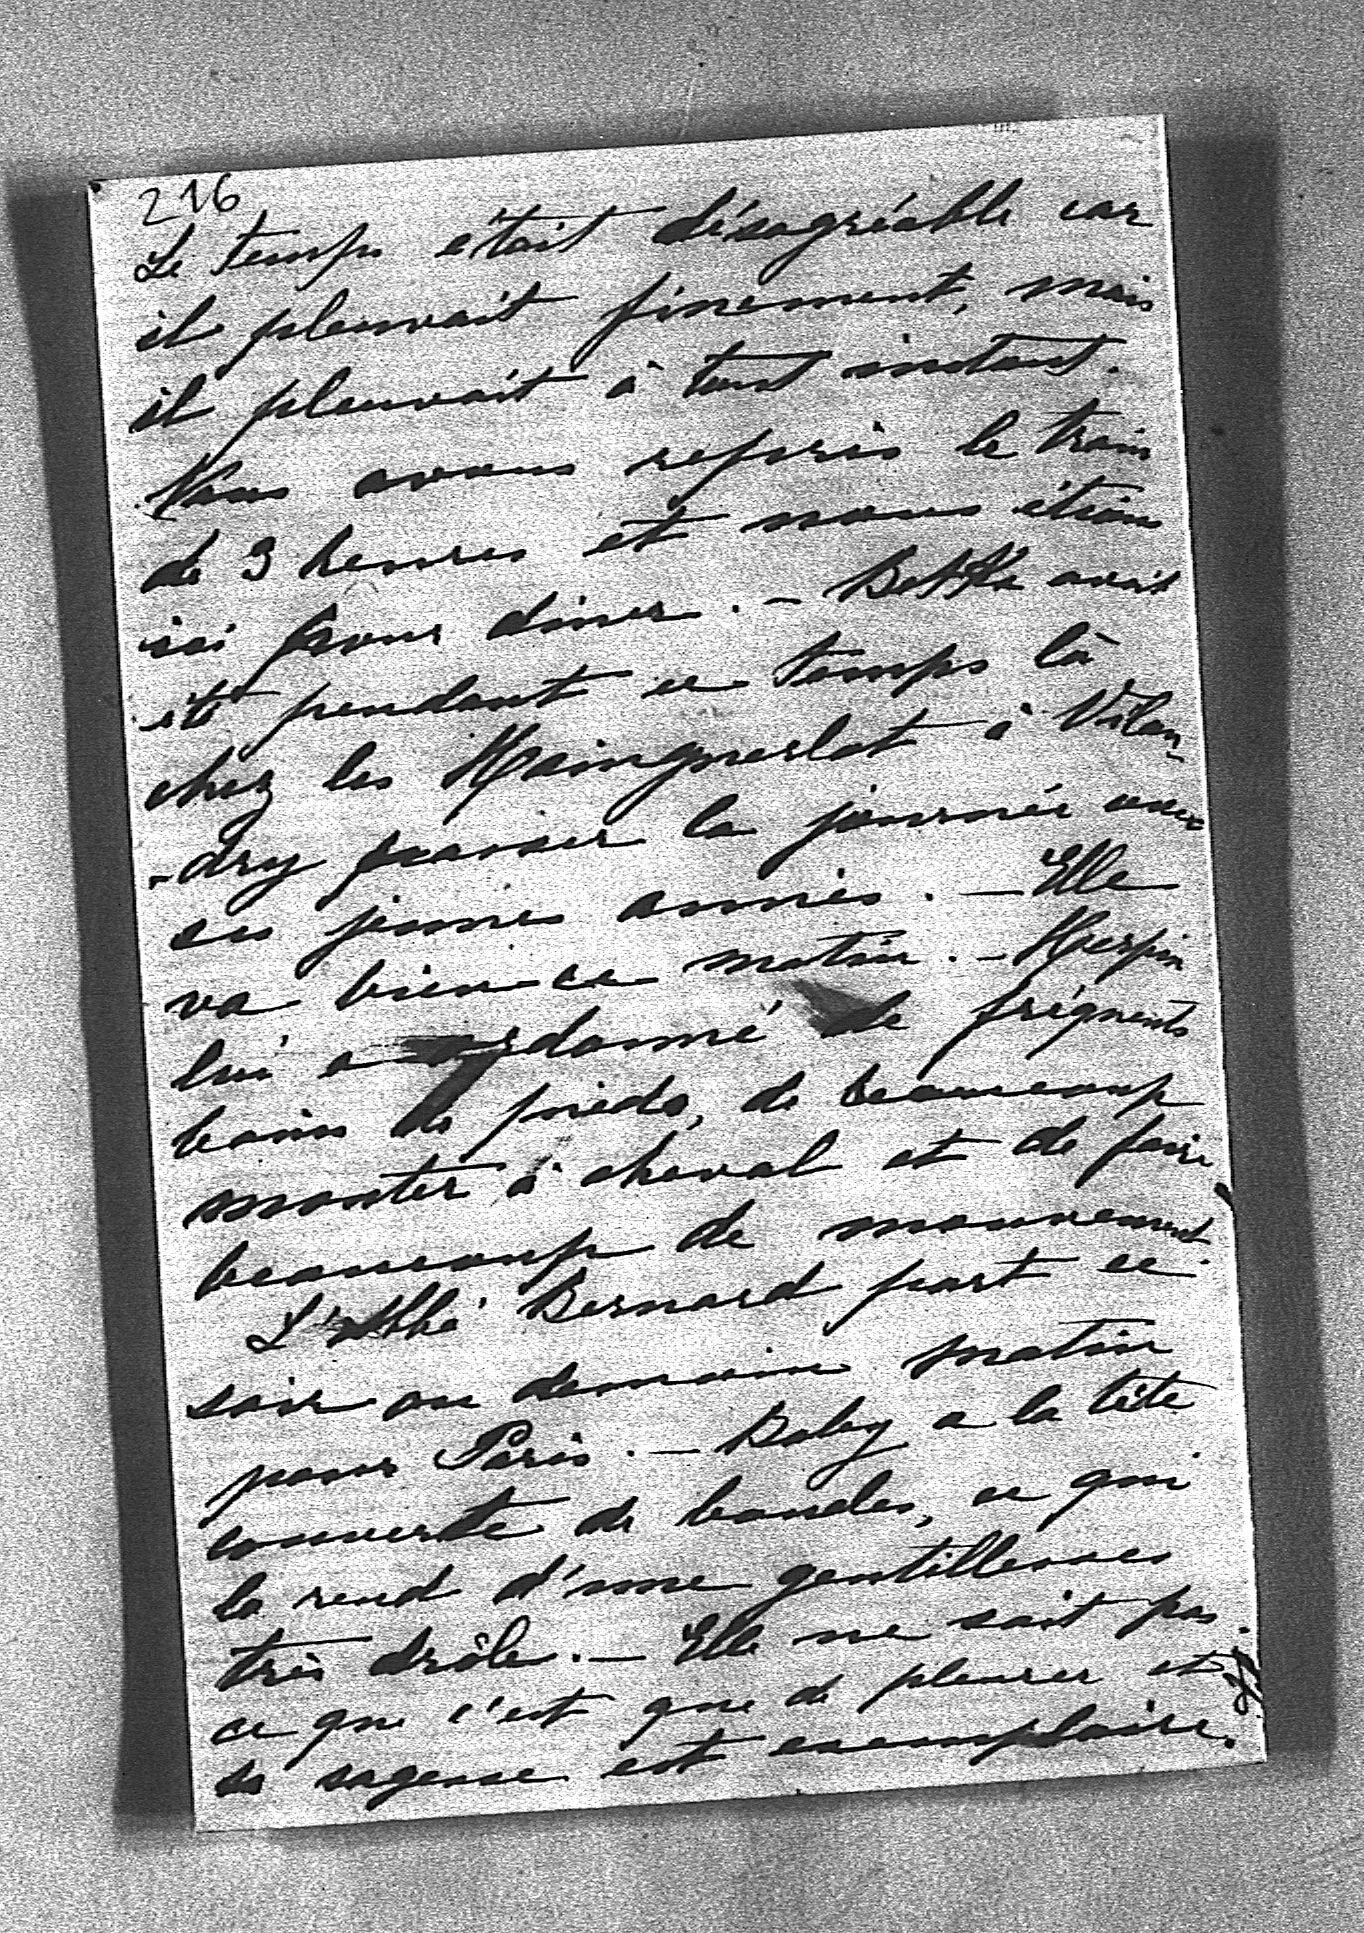 216
Le temps était désagréable car
il pleuvait finement, mais
il pleuvait à tout instant.
Nous avons repris le train
de 3 heures et nous étions
ici pour dîner. — Betthe avait
été pendant ce temps là
chez les Hainguerlot à Vilan
-dry passer la journée avec
ses jeunes amies. — Elle
va bien ce matin. — Herpin
lui a ordonné de fréquents
bains de pieds, de beaucoup
monter à cheval et de faire
beaucoup de mouvement.
L'abbé Bernard part ce
soir ou demain matin
pour Paris. — Baby a la tête
couverte de boucles, ce qui
la rend d'une gentillesse
très drôle. — Elle ne sait pas
ce que c'est que de pleurer et
sa sagesse est exemplaire.